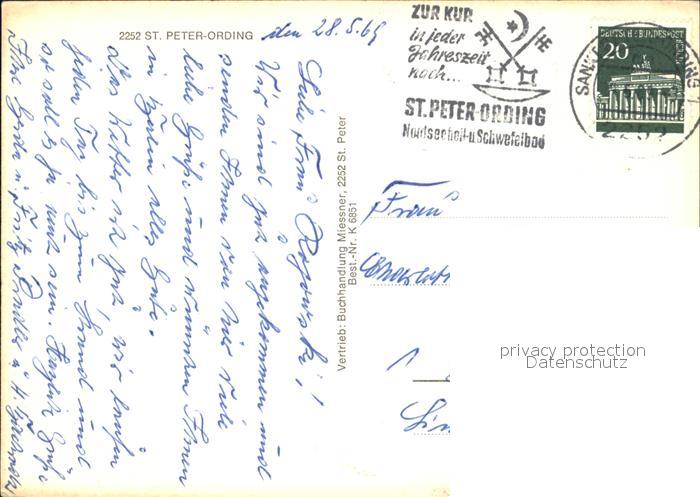 2252 ST. PETER-ORDING
den 28.5.69
Liebe Frau
Wir sind gut angekommen und
senden Ihnen von hier viele
liebe Grüße und wünschen Ihnen
in Berlin alles Gute.
Das Wetter ist gut, wir laufen
jeden Tag bis zum Strand und
so soll es ja sein. Herzliche Grüße
Ihre
Vertrieb: Buchhandlung Miessner, 2252 St. Peter
Best.-Nr. K 6851
ZUR KUR
in jeder
Jahreszeit
nach...
ST. PETER-ORDING
Nordseeheil-u Schwefelbad
DEUTSCHE BUNDESPOST
20
SANKT
2252
Frau
privacy protection
Datenschutz